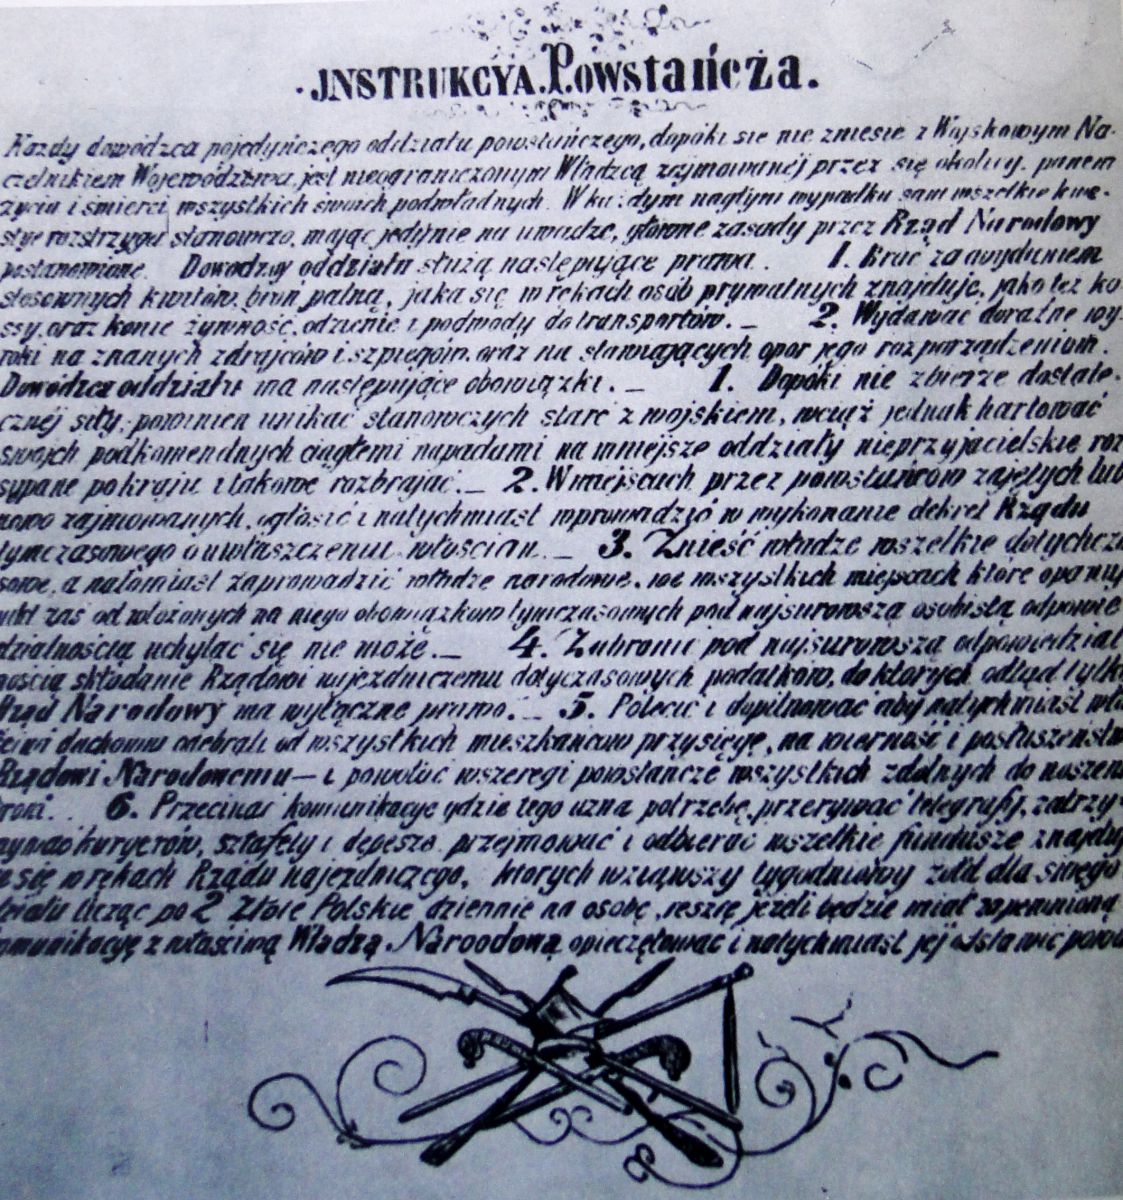 .JNSTRUKCYA.Powstańcża.
Kazdy dowódzca pojedyńczego oddziału powstańczego, dopóki się nie zniesie z Wojskowym Na-
czelnikiem Województwa, jest nieograniczonym Władzcą zajmowanéj przez się okolicy, panem
życia i śmierci wszystkich swoich podwładnych. W każdym nagłym wypadku sam wszelkie kwe-
stye rozstrzyga stanowczo, mając jedynie na uwadze, główne zasady przez Rząd Narodowy
postanowione. Dowódzcy oddziału służą następujące prawa. 1. Brać za wydaniem
stosownych kwitów, broń palną, jaka się w rękach osób prywatnych znajduje, jako też ko-
sy, oraz konie żywność, odzienie i podwody do transportów. _ 2. Wydawać doraźne wy-
roki na znanych zdrajców i szpiegów, oraz na stawiających opór jego rozporządzeniom.
Dowódzca oddziału ma następujące obowiązki. _ 1. Dopóki nie zbierze dostate-
cznéj siły, powinien unikać stanowczych starć z wojskiem, wciąż jednak hartować
swojch podkomendnych ciągłemi napadami na mniejsze oddziały nieprzyjacielskie roz
sypane po kraju i takowe rozbrajać. _ 2. W miejscach przez powstańców zajętych lub
nowo zajmowanych, ogłosić i natychmiast wprowadzić w wykonanie dekret Rządu
tymczasowego o uwłaszczeniu włościan _ 3. Znieść władze wszelkie dotychcza
sowe, a natomiast zaprowadzić władze narodowe, we wszystkich miejscach które opanuj
nikt zaś od włożonych na niego obowiązków tymczasowych pod najsurowszą osobistą odpowie
dzialnością uchylać się nie może. _ 4. Zabronić pod najsurowszą odpowiedzial
nością składanie Rządowi najezdniczemu dotyczasowych podatków, do których odtąd tylko
Rząd Narodowy ma wyłączne prawo. _ 5. Polecić i dopilnować aby natychmiast wła
duchowni odebrali od wszystkich mieszkańców przysięgę, na wierność i posłuszeństw
Rządowi Narodowemu — i powołać w szeregi powstańcze wszystkich zdolnych do noszen
broni. . 6. Przecinać komunikacye gdzie tego uzna potrzebę, przerywać telegrafy, zatrzy-
kuryerów, sztafety i depesze przejmować i odbierać wszelkie fundusze znajduj
się w rękach Rządu najezdniczego, których wziąwszy tygodniowy żołd dla swego
licząc po 2 Złote Polskie dziennie na osobę, resztę jeżeli będzie miał zapewnioną
komunikacyę z właściwą Władzą Naroodową opieczętować i natychmiast jej odstawić